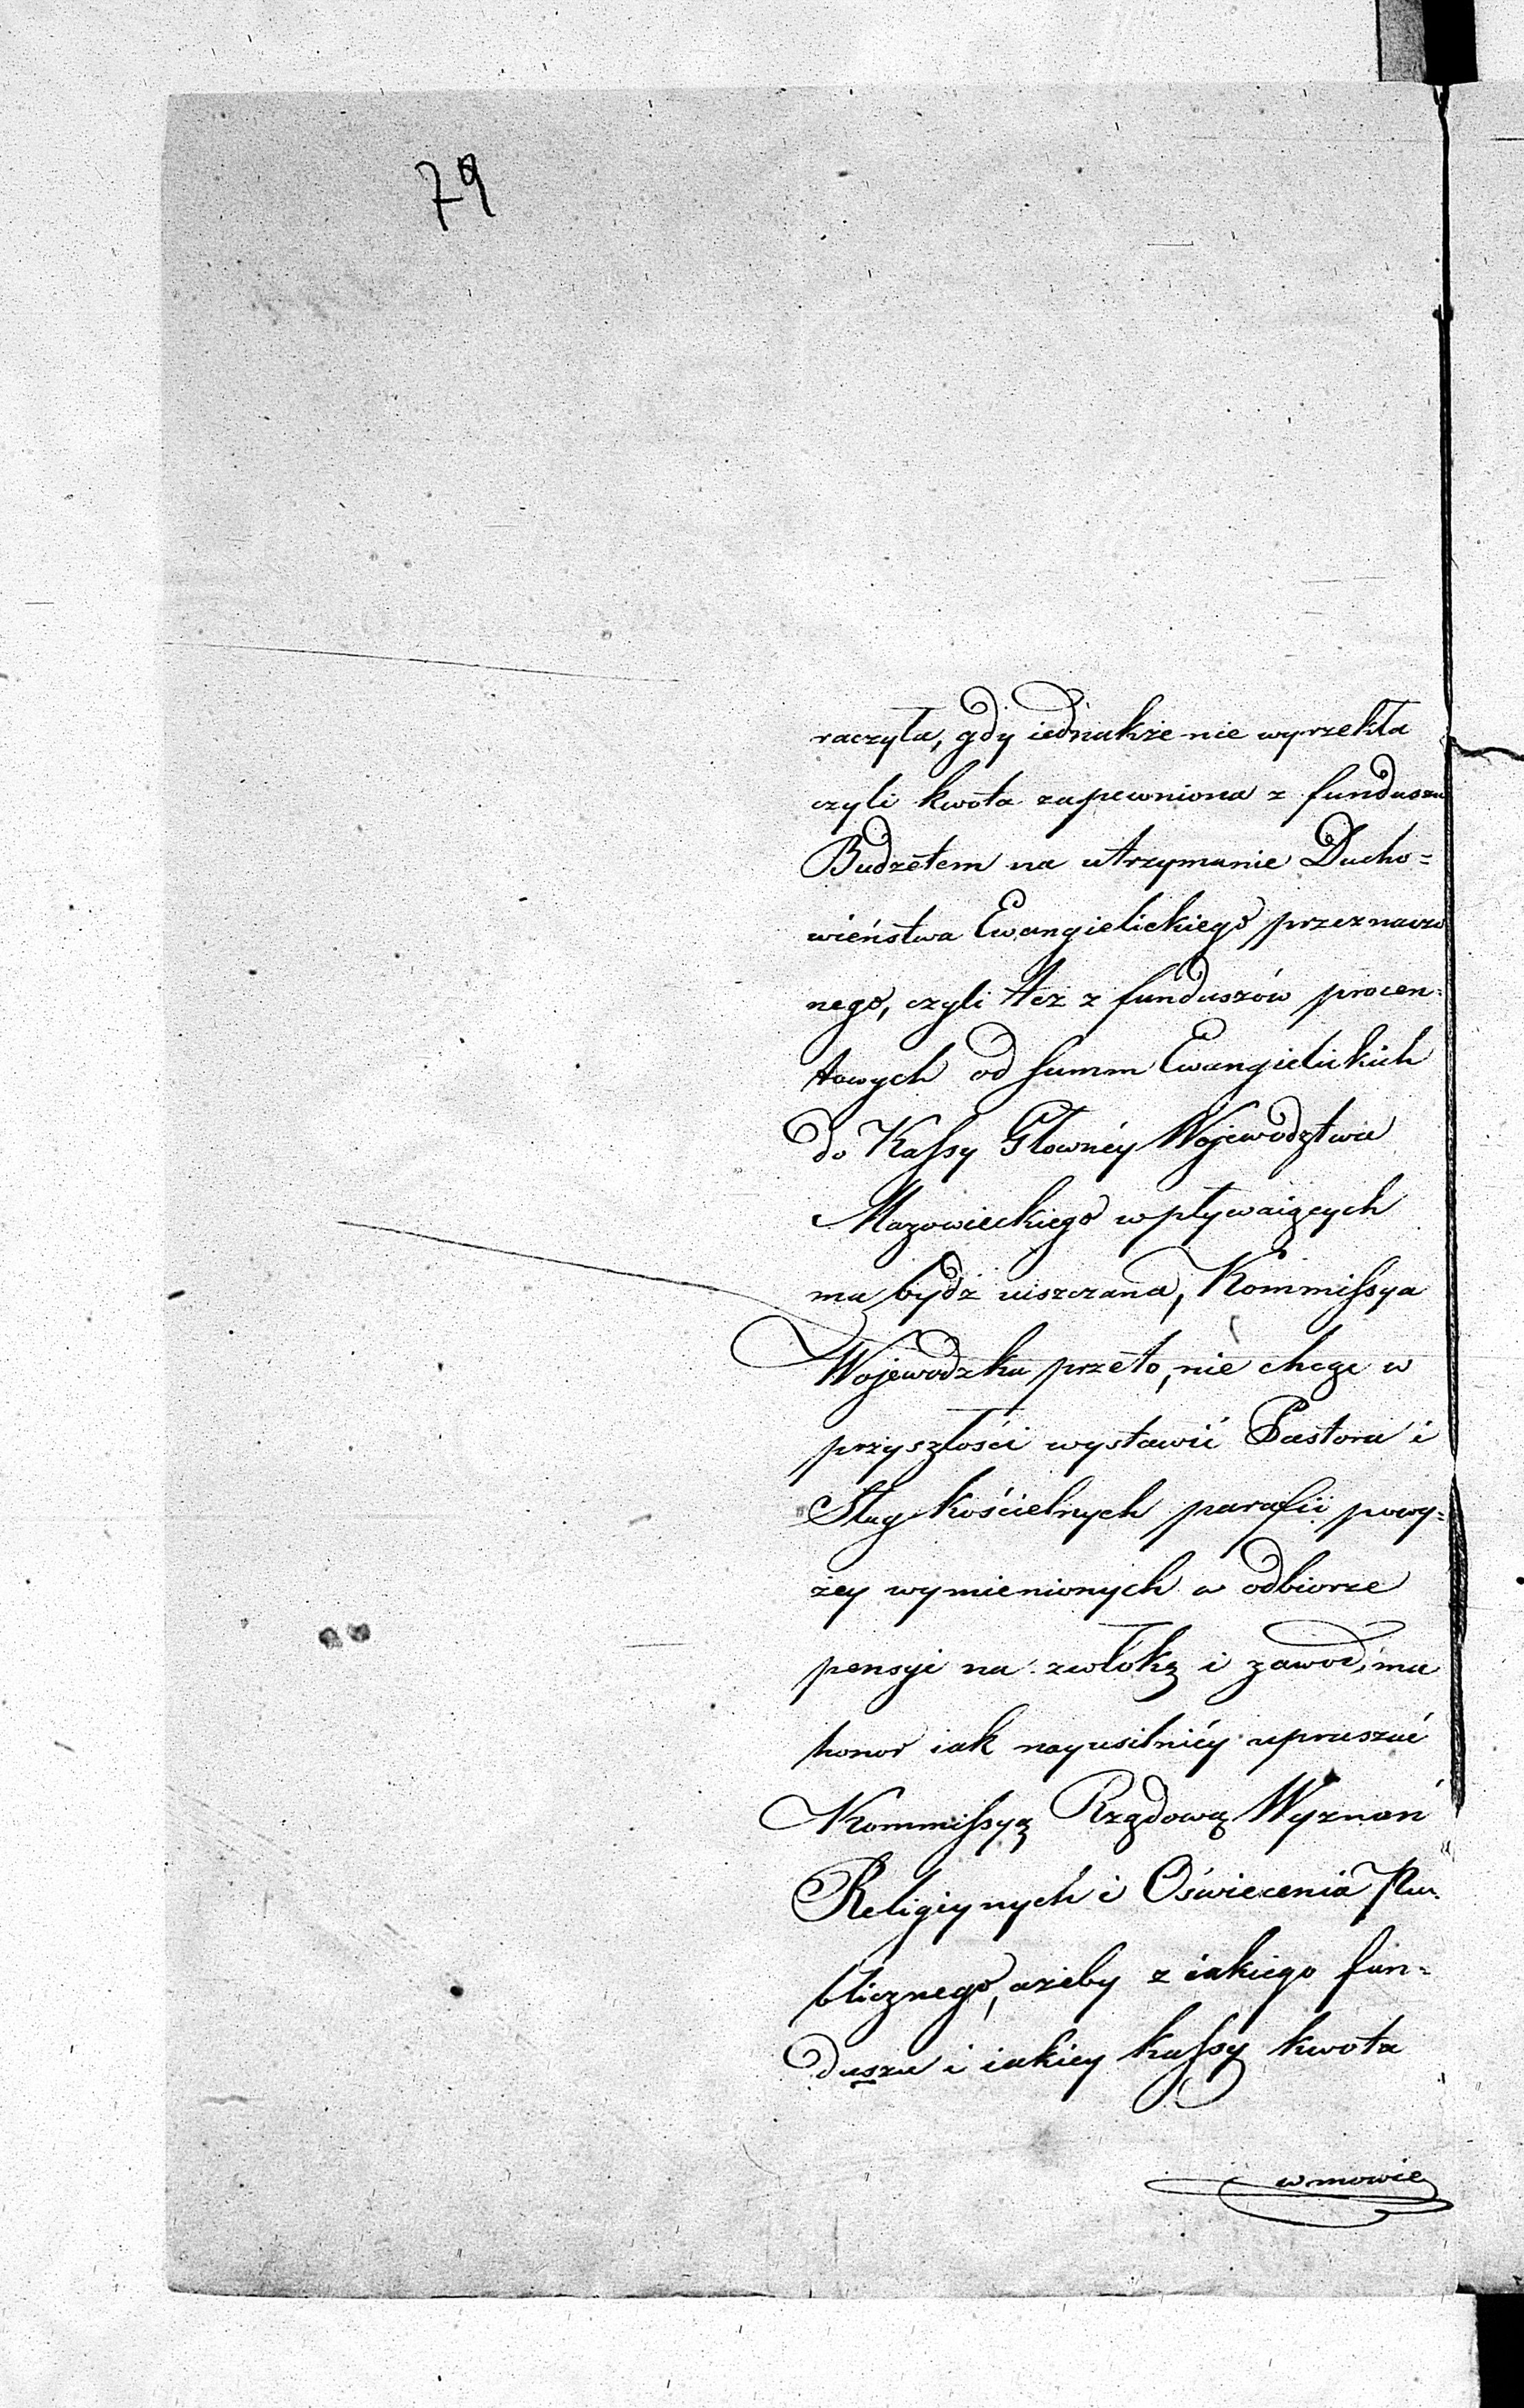 79
raczyła, gdy iednakże nie wyrzekła
czyli kwota zapewniona z funduszu
Budżetem na utrzymanie Ducho=
wieństwa Ewangielickiego przeznaczo
nego, czyli też z funduszów procen=
towych od summ Ewangielickich
do Kassy Głownéy Wojewodztwa
Mazowieckiego wpływaiących
ma bydź uiszczana, Kommissya
Wojewodzka przeto, nie chcąc w
przyszłości wystawić Pastora i
Sług kościelnych parafii powy=
żey wymienionych w odbiorze
pensyi na zwłokę i zawód, ma
honor iak nayusilniéy upraszać
Kommissyą Rządową Wyznań
Religiynych i Oświecenia Pu=
blicznego, ażeby z iakiego fun=
duszu i iakiey kassy kwota
w mowie